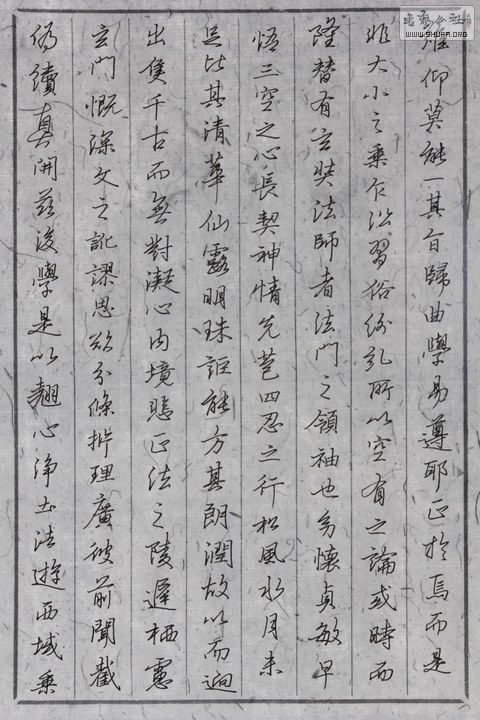 書藝公社
WWW.SHUFA.ORG
難仰莫能一其旨歸曲學易遵耶正於焉而是
非大小之乘乍沿習俗紛糺所以空有之論或時而
隆替有玄奘法師者法門之領袖也幼懷貞敏早
悟三空之心長契神情先苞四忍之行松風水月未
足比其清華仙露明珠詎能方其朗潤故以而迥
出隻千古而無對凝心内境悲正法之陵遲栖慮
玄門慨深文之訛謬思欲分條析理廣彼前聞截
偽續真開茲後學是以翹心淨土法遊西域乘